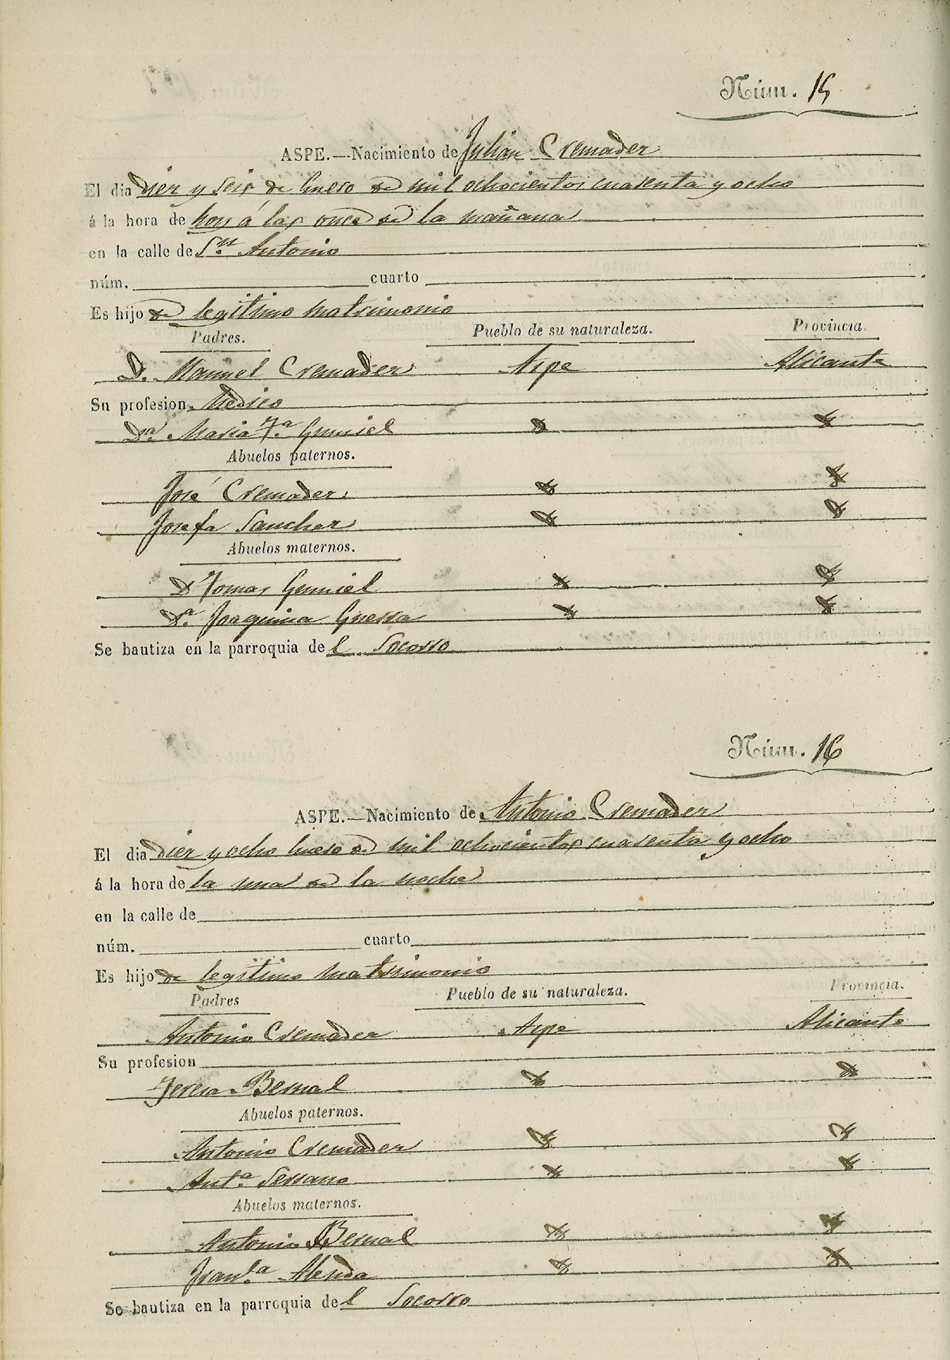 Núm. 15
ASPE.—Nacimiento de Julián Cremader
El dia diez y seis de Enero de mil ochocientos cuarenta y ocho
á la hora de hoy á las once de la mañana
en la calle de Sn. Antonio
núm. cuarto
Es hijo de legítimo matrimonio
Padres. Pueblo de su naturaleza. Provincia.
D. Manuel Cremader Aspe Alicante
Su profesion Médico
Da. Maria Fa. Gumiel
Abuelos paternos.
José Cremader
Josefa Sanchez
Abuelos maternos.
D. Tomas Gumiel
Da. Joaquina
Se bautiza en la parroquia del Socorro
Núm. 16
ASPE.—Nacimiento de Antonio Cremader
El dia diez y ocho Enero de mil ochocientos cuarenta y ocho
á la hora de la una de la noche
en la calle de
núm. cuarto
Es hijo de legítimo matrimonio
Padres Pueblo de su naturaleza. Provincia.
Antonio Cremader Aspe Alicante
Su profesion
Teresa Bernal
Abuelos paternos.
Antonio Cremader
Anta. Serrano
Abuelos maternos.
Antonio Bernal
Alenda
Se bautiza en la parroquia del Socorro